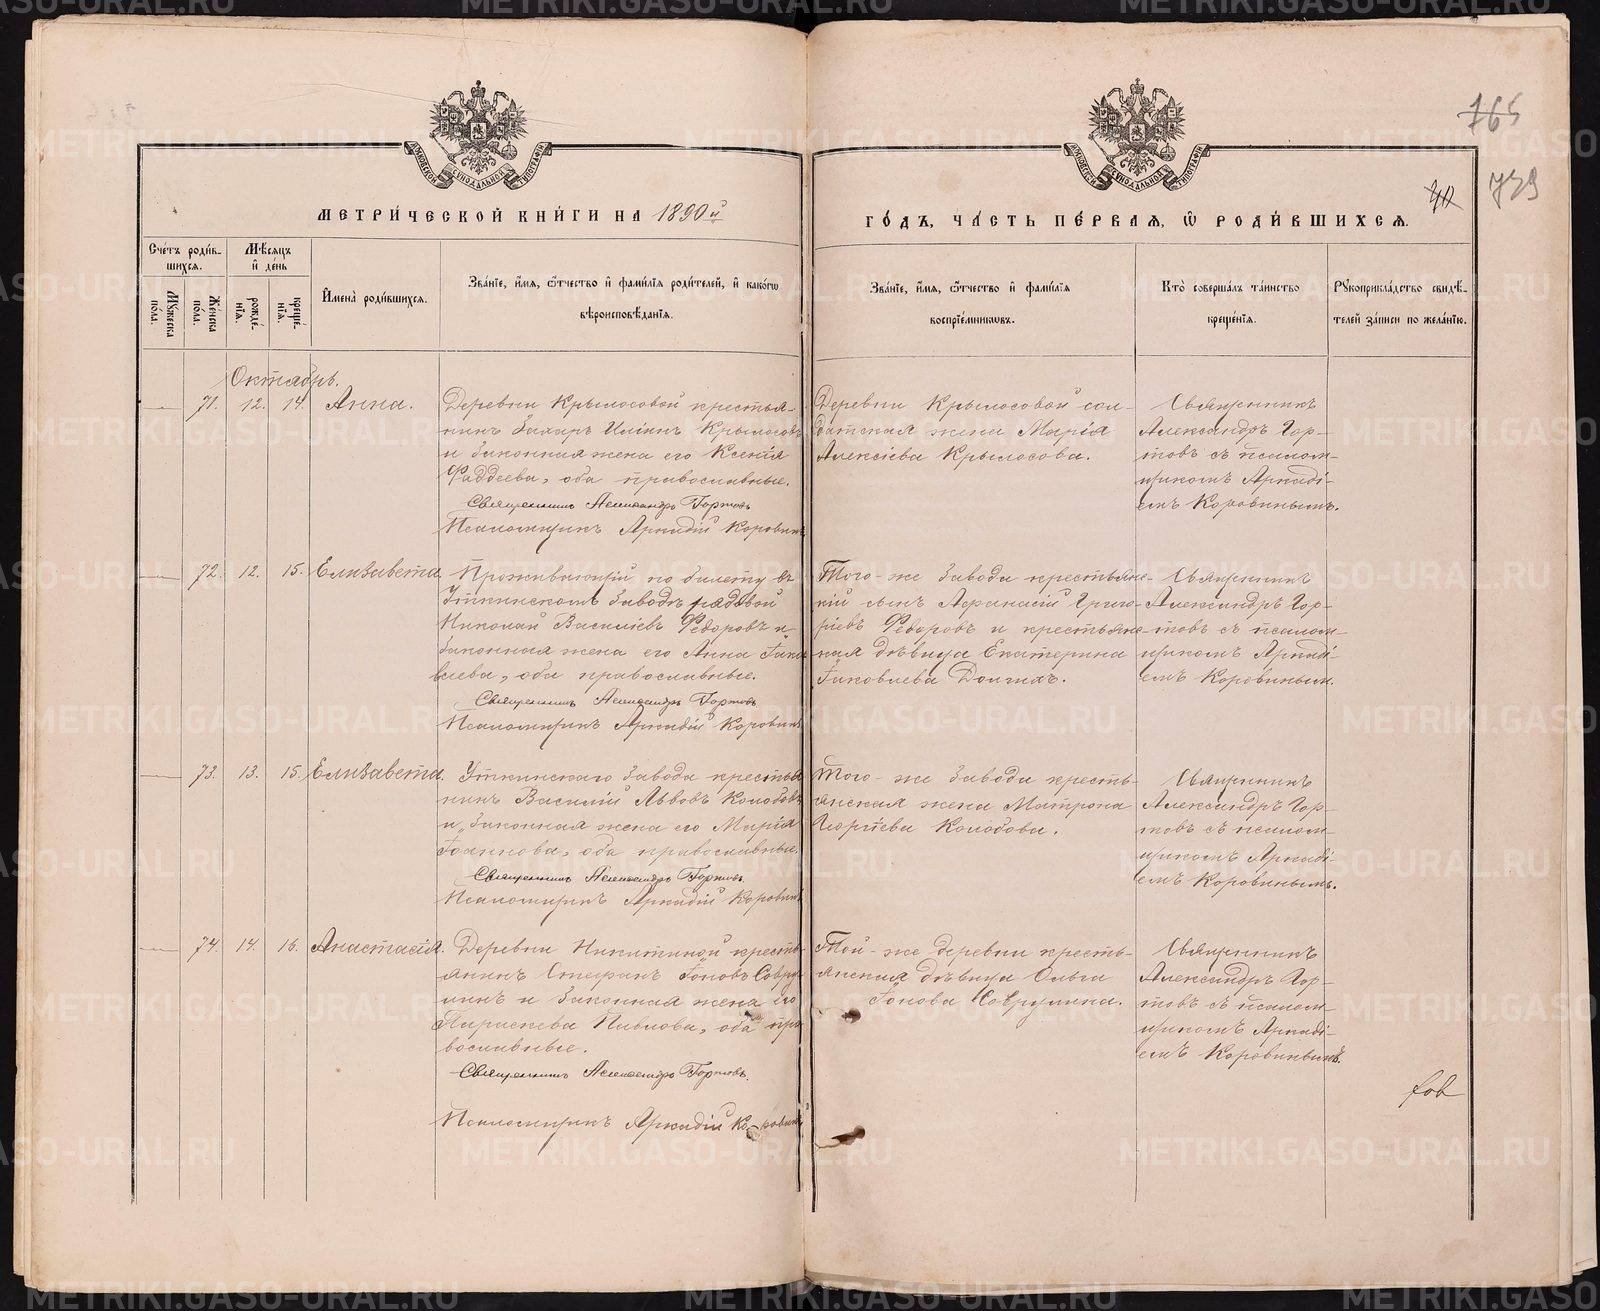 765
739
МОСКОВСКОЙ СѴНОДАЛЬНОЙ ТИПОГРАФІИ
МОСКОВСКОЙ СѴНОДАЛЬНОЙ ТИПОГРАФІИ
МЕТРИ́ЧЕСКОЙ КНИ́ГИ НА 1890й
ГО́ДЪ, ЧА́СТЬ ПЕ́РВАЯ, Ѡ҆ РОДИ́ВШИХСѦ.
Сче́тъ роди́в-
шихсѧ.
Мꙋ́жеска по́ла.
Же́нска по́ла.
Мѣ́сѧцъ
и҆ де́нь
рожде́-
нїѧ.
креще́-
нїѧ.
И҆мена̀ роди́вшихсѧ.
Зва́нїе, и҆́мѧ, ѻ҆́тчество и҆ фами́лїѧ роди́телей, и҆ како́гѡ
вѣроисповѣ́данїѧ.
Зва́нїе, и҆́мѧ, ѻ҆́тчество и҆ фами́лїѧ
воспрїе́мникѡвъ.
Кто̀ соверша́лъ та́инство
креще́нїѧ.
Рꙋкоприкла́дство свидѣ́-
телей за́писи по жела́нїю.
Октябрь.
71. 12. 14. Анна.
Деревни Крылосовой крестья-
нинъ Захаръ Илиинъ Крылосовъ
и законная жена его Ксенія
Фаддеева, оба православные.
Священникъ Александръ Гортовъ
Псаломщикъ Аркадій Коровинъ
Деревни Крылосовой сол-
датская жена Марія
Алексіева Крылосова.
Священникъ
Александръ Гор-
товъ съ псалом-
щикомъ Аркаді-
емъ Коровинымъ.
72. 12. 15. Елизавета.
Проживающій по билету въ
Уткинскомъ заводѣ рядовой
Николай Василіевъ Ѳедоровъ и
законная жена его Анна Іако-
влева, оба православные.
Священникъ Александръ Гортовъ
Псаломщикъ Аркадій Коровинъ
Того-же завода крестьянс-
кій сынъ Аѳанасій Григо-
ріевъ Ѳедоровъ и крестьянс-
кая дѣвица Екатерина
Іаковлева Долгихъ.
Священникъ
Александръ Гор-
товъ съ псалом-
щикомъ Аркаді-
емъ Коровинымъ.
73. 13. 15. Елизавета.
Уткинскаго завода крестья-
нинъ Василій Львовъ Колобовъ
и законная жена его Марія
Іоаннова, оба православные.
Священникъ Александръ Гортовъ.
Псаломщикъ Аркадій Коровинъ
Того-же завода кресть-
янская жена Матрона
Георгіева Колобова.
Священникъ
Александръ Гор-
товъ съ псалом-
щикомъ Аркаді-
емъ Коровинымъ.
74. 14. 16. Анастасія.
Деревни Никитиной кресть-
янинъ Стефанъ Іоновъ Совру-
линъ и законная жена его
Параскева Павлова, оба пра-
вославные.
Священникъ Александръ Гортовъ.
Псаломщикъ Аркадій Коровинъ
Той-же деревни кресть-
янская дѣвица Ольга
Іонова Соврулина.
Священникъ
Александръ Гор-
товъ съ псалом-
щикомъ Аркаді-
емъ Коровинымъ.
METRIKI.GASO-URAL.RU